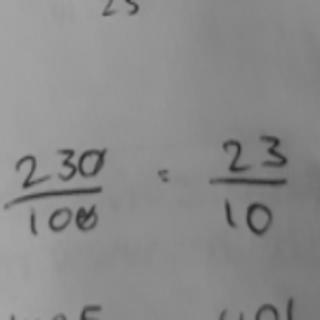 25
230/100 = 23/10